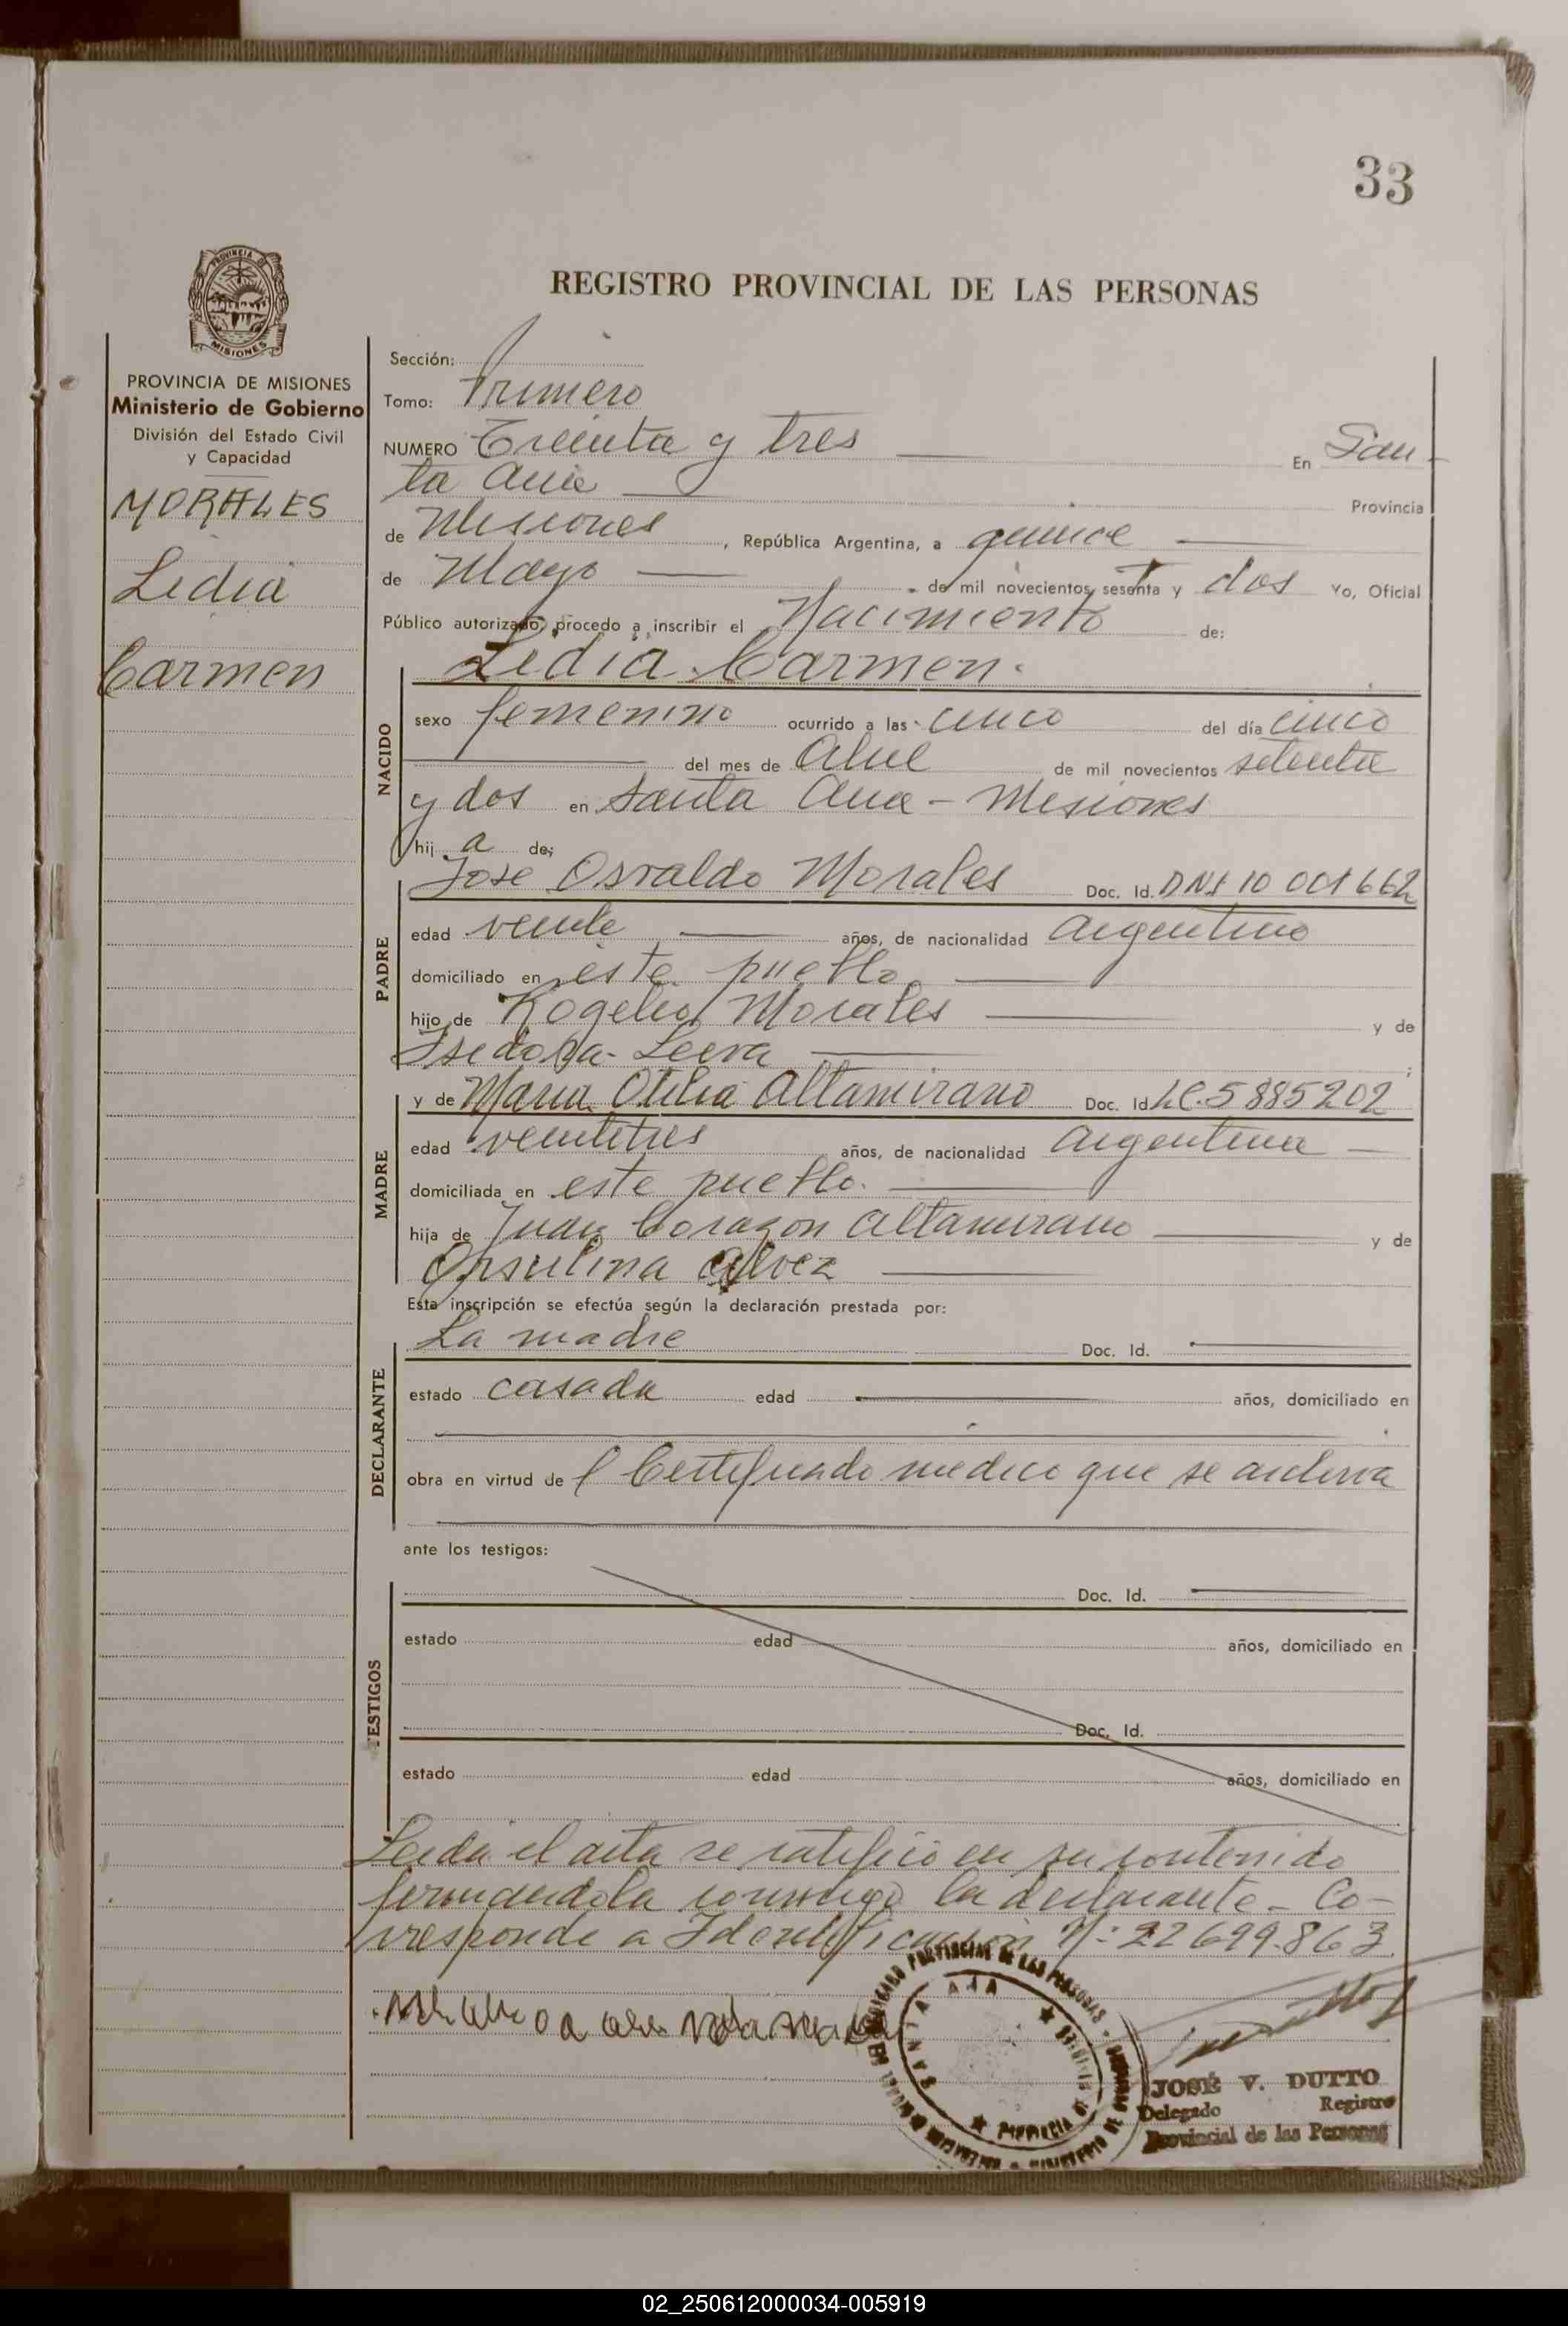 33
REGISTRO PROVINCIAL DE LAS PERSONAS
PROVINCIA DE
MISIONES
PROVINCIA DE MISIONES
Ministerio de Gobierno
División del Estado Civil
y Capacidad
MORALES
Lidia
Carmen
Sección:
Tomo: Primero
NUMERO Treinta y tres En San-
ta Ana Provincia
de Misiones, República Argentina, a quince
de Mayo de mil novecientos sesenta y dos Yo, Oficial
Público autorizado, procedo a inscribir el Nacimiento de:
Lidia Carmen.
NACIDO
sexo femenino ocurrido a las cinco del día cinco
del mes de Abril de mil novecientos setenta
y dos en Santa Ana - Misiones
hij a de:
PADRE
José Osvaldo Morales Doc. Id. DNI 10 001662
edad veinte años, de nacionalidad Argentino
domiciliado en este pueblo
hijo de Rogelio Morales y de
Isidora Leiva
MADRE
y de Maria Otilia Altamirano Doc. Id LC. 5885202
edad veintitres años, de nacionalidad Argentina
domiciliada en este pueblo.
hija de Juan Corazon Altamirano y de
Ursulina Alvez
Esta inscripción se efectúa según la declaración prestada por:
DECLARANTE
La madre Doc. Id.
estado casada edad años, domiciliado en
obra en virtud de l Certificado medico que se archiva
ante los testigos:
TESTIGOS
Doc. Id.
estado edad años, domiciliado en
Doc. Id.
estado edad años, domiciliado en
Leida el acta se ratificó en su contenido
firmandola conmigo la declarante - Co-
rresponde a Identificacion Nº 22 699.863
PROVINCIAL DE LAS PERSONAS
SANTA ANA
JOSÉ V. DUTTO
Delegado Registro
Provincial de las Personas
02_250612000034-005919